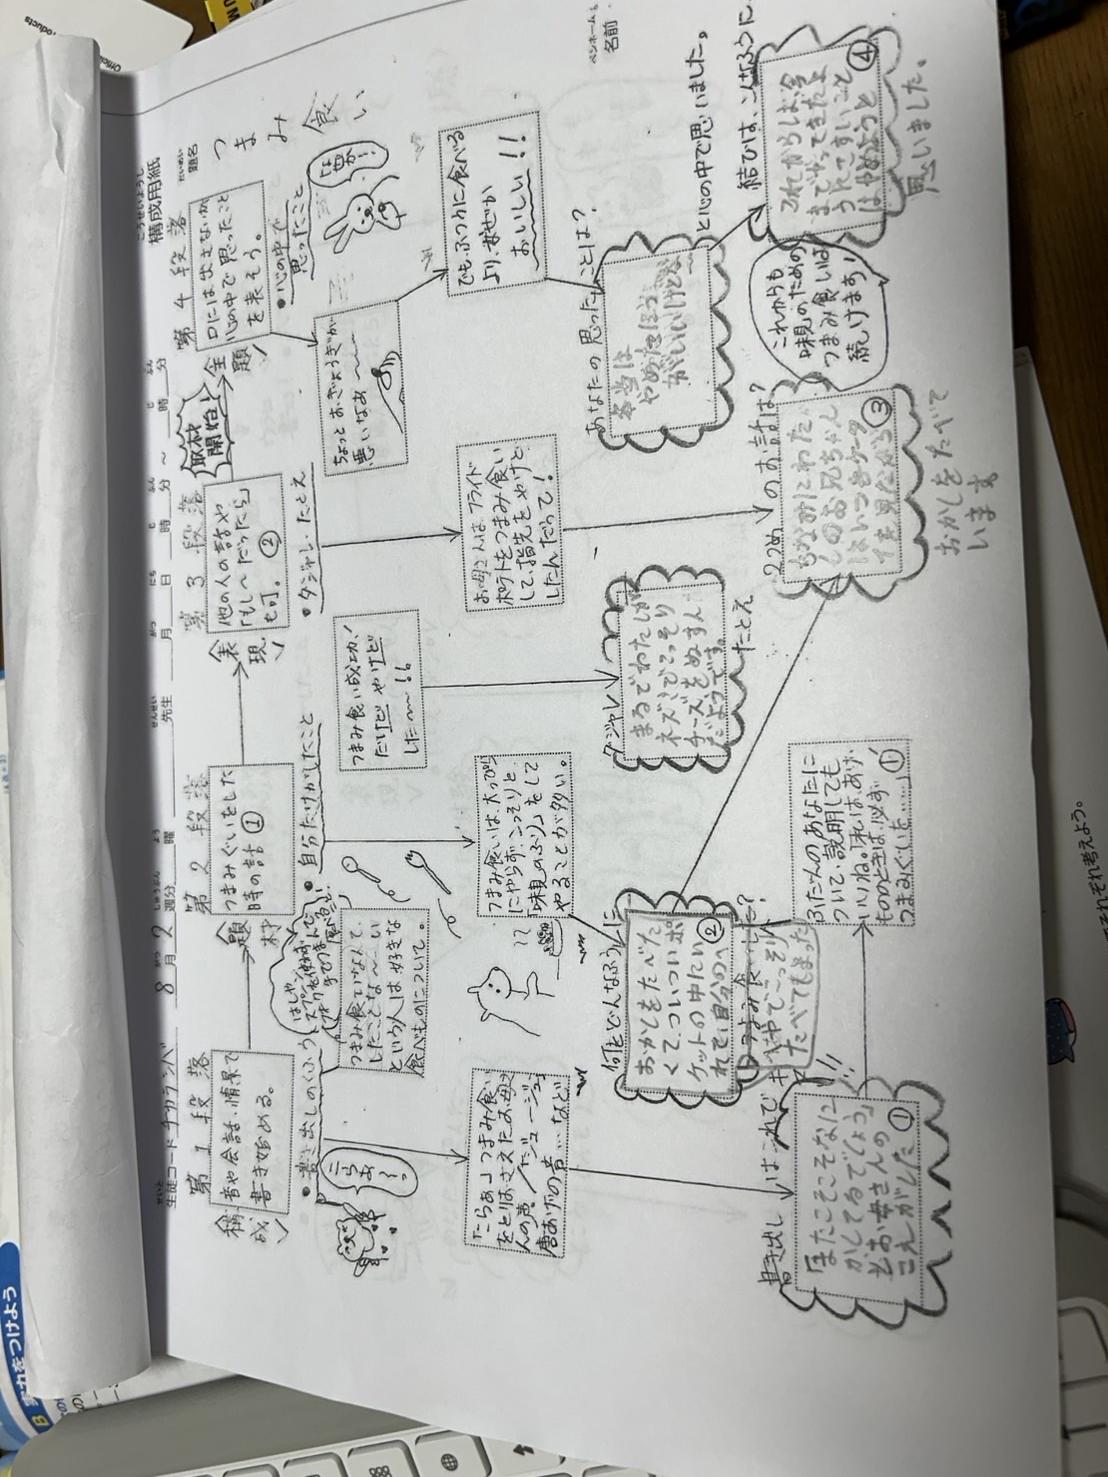 構成用紙
題名
つまみ食い
生徒コード チカラシバ 8月2週分 曜 先生 月 日 時 分 ～ 時 分
ペンネーム・名前
第1段落
〈構成〉
音や会話、情景で
書き始める。
・書き出しのくふう
こらぁ!
「こらぁ」つまみ食い
をとりおさえたお母さ
んの声/「ジュージュー」
唐あげの音…など
書き出しはこれで
「またこそこそなに
かしてるでしょう」
とお母さんの
こえがした ①
第2段落
〈題材〉
つまみぐいをした
時の話 ①
はしや、
スプーン、
フォークを使わず、
手でつまんで
食べること
・自分だけがしたこと
つまみ食いなんて、
したことな～い
という人は好きな
食べものについて。
つまみ食いは、大っぴら
にやらず、こっそりと
「味見のふり」をして
やることが多い。
何をどんなふうに
つまみ食いした?
おかしをたべた
くて、ついついポ
ケットの中たいれて、自分のへ ②
やでこっそり
たべてしまった
ふだんのあなたに
ついて説明しても
いいね。「私は、あげ
もののときは、必ず
つまみぐいを……」①´
第3段落
〈表現〉
他の人の話や
「もし～だったら」
も可。 ②
・ダジャレ・たとえ
つまみ食い成功!
だけどやけど
した～!!
ダジャレ
まるでわたしが
ネズミでこっそり
チーズをぬすん
だようです。
たとえ
お母さんは、フライド
ポテトをつまみ食い
して、指先をやけど
したんだって!
2つめのお話は?
ちなみにわたし
しのお兄ちゃん
はいつもケータ
イを見ながら ③
おかしをたべて
います
第4段落
取材開始!
〈主題〉
口には出さないが
心の中で思ったこと
を表そう。
・心の中で
思ったこと
夢!
ちょっとおぎょうぎが
悪いなぁ～
でも、ふつうに食べる
より、なぜか
おいしい!!
あなたの思ったことは?
本当は
やめたほう
がいいけどな
と心の中で思いました。
結びは、こんなふうに
これからも
味見のための
つまみ食いは
続けます!
これからは、今
までやってきたよ
うなこずるいこと
はやめようと ④
思いました。
実力をつけよう
それぞれ考えよう。
Official
Products